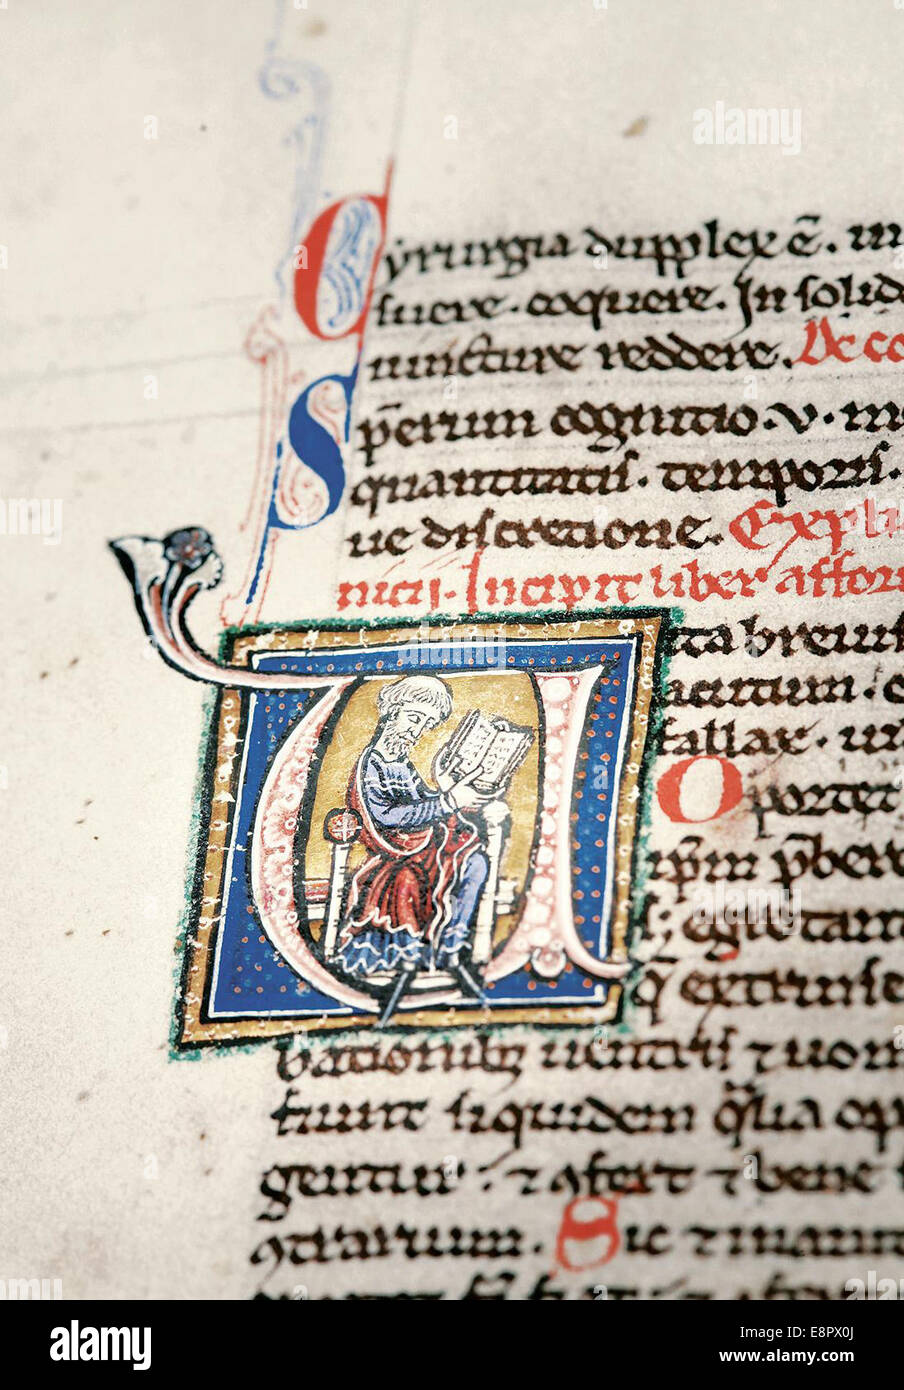 Cyrurgia dupplex ē. in
suere. coquere. In solid
iuncture reddere. De co
Spērum cognitio. v. m
quantitatis. temporis.
ue discretione. Expli
nicii. Incipit liber affori
Vita breuis
acutum.
fallax. iu
Oportet
ip̄m p̄bere
s; egrotan
q̄ exterius
bationibꝫ uentris ⁊ uom
fiunt siquidem
gentur: ⁊ ꝯfert ⁊ bene
ꝯtrarium. Sic ⁊ inani
alamy
alamy
Image ID: E8PX0J
www.alamy.com